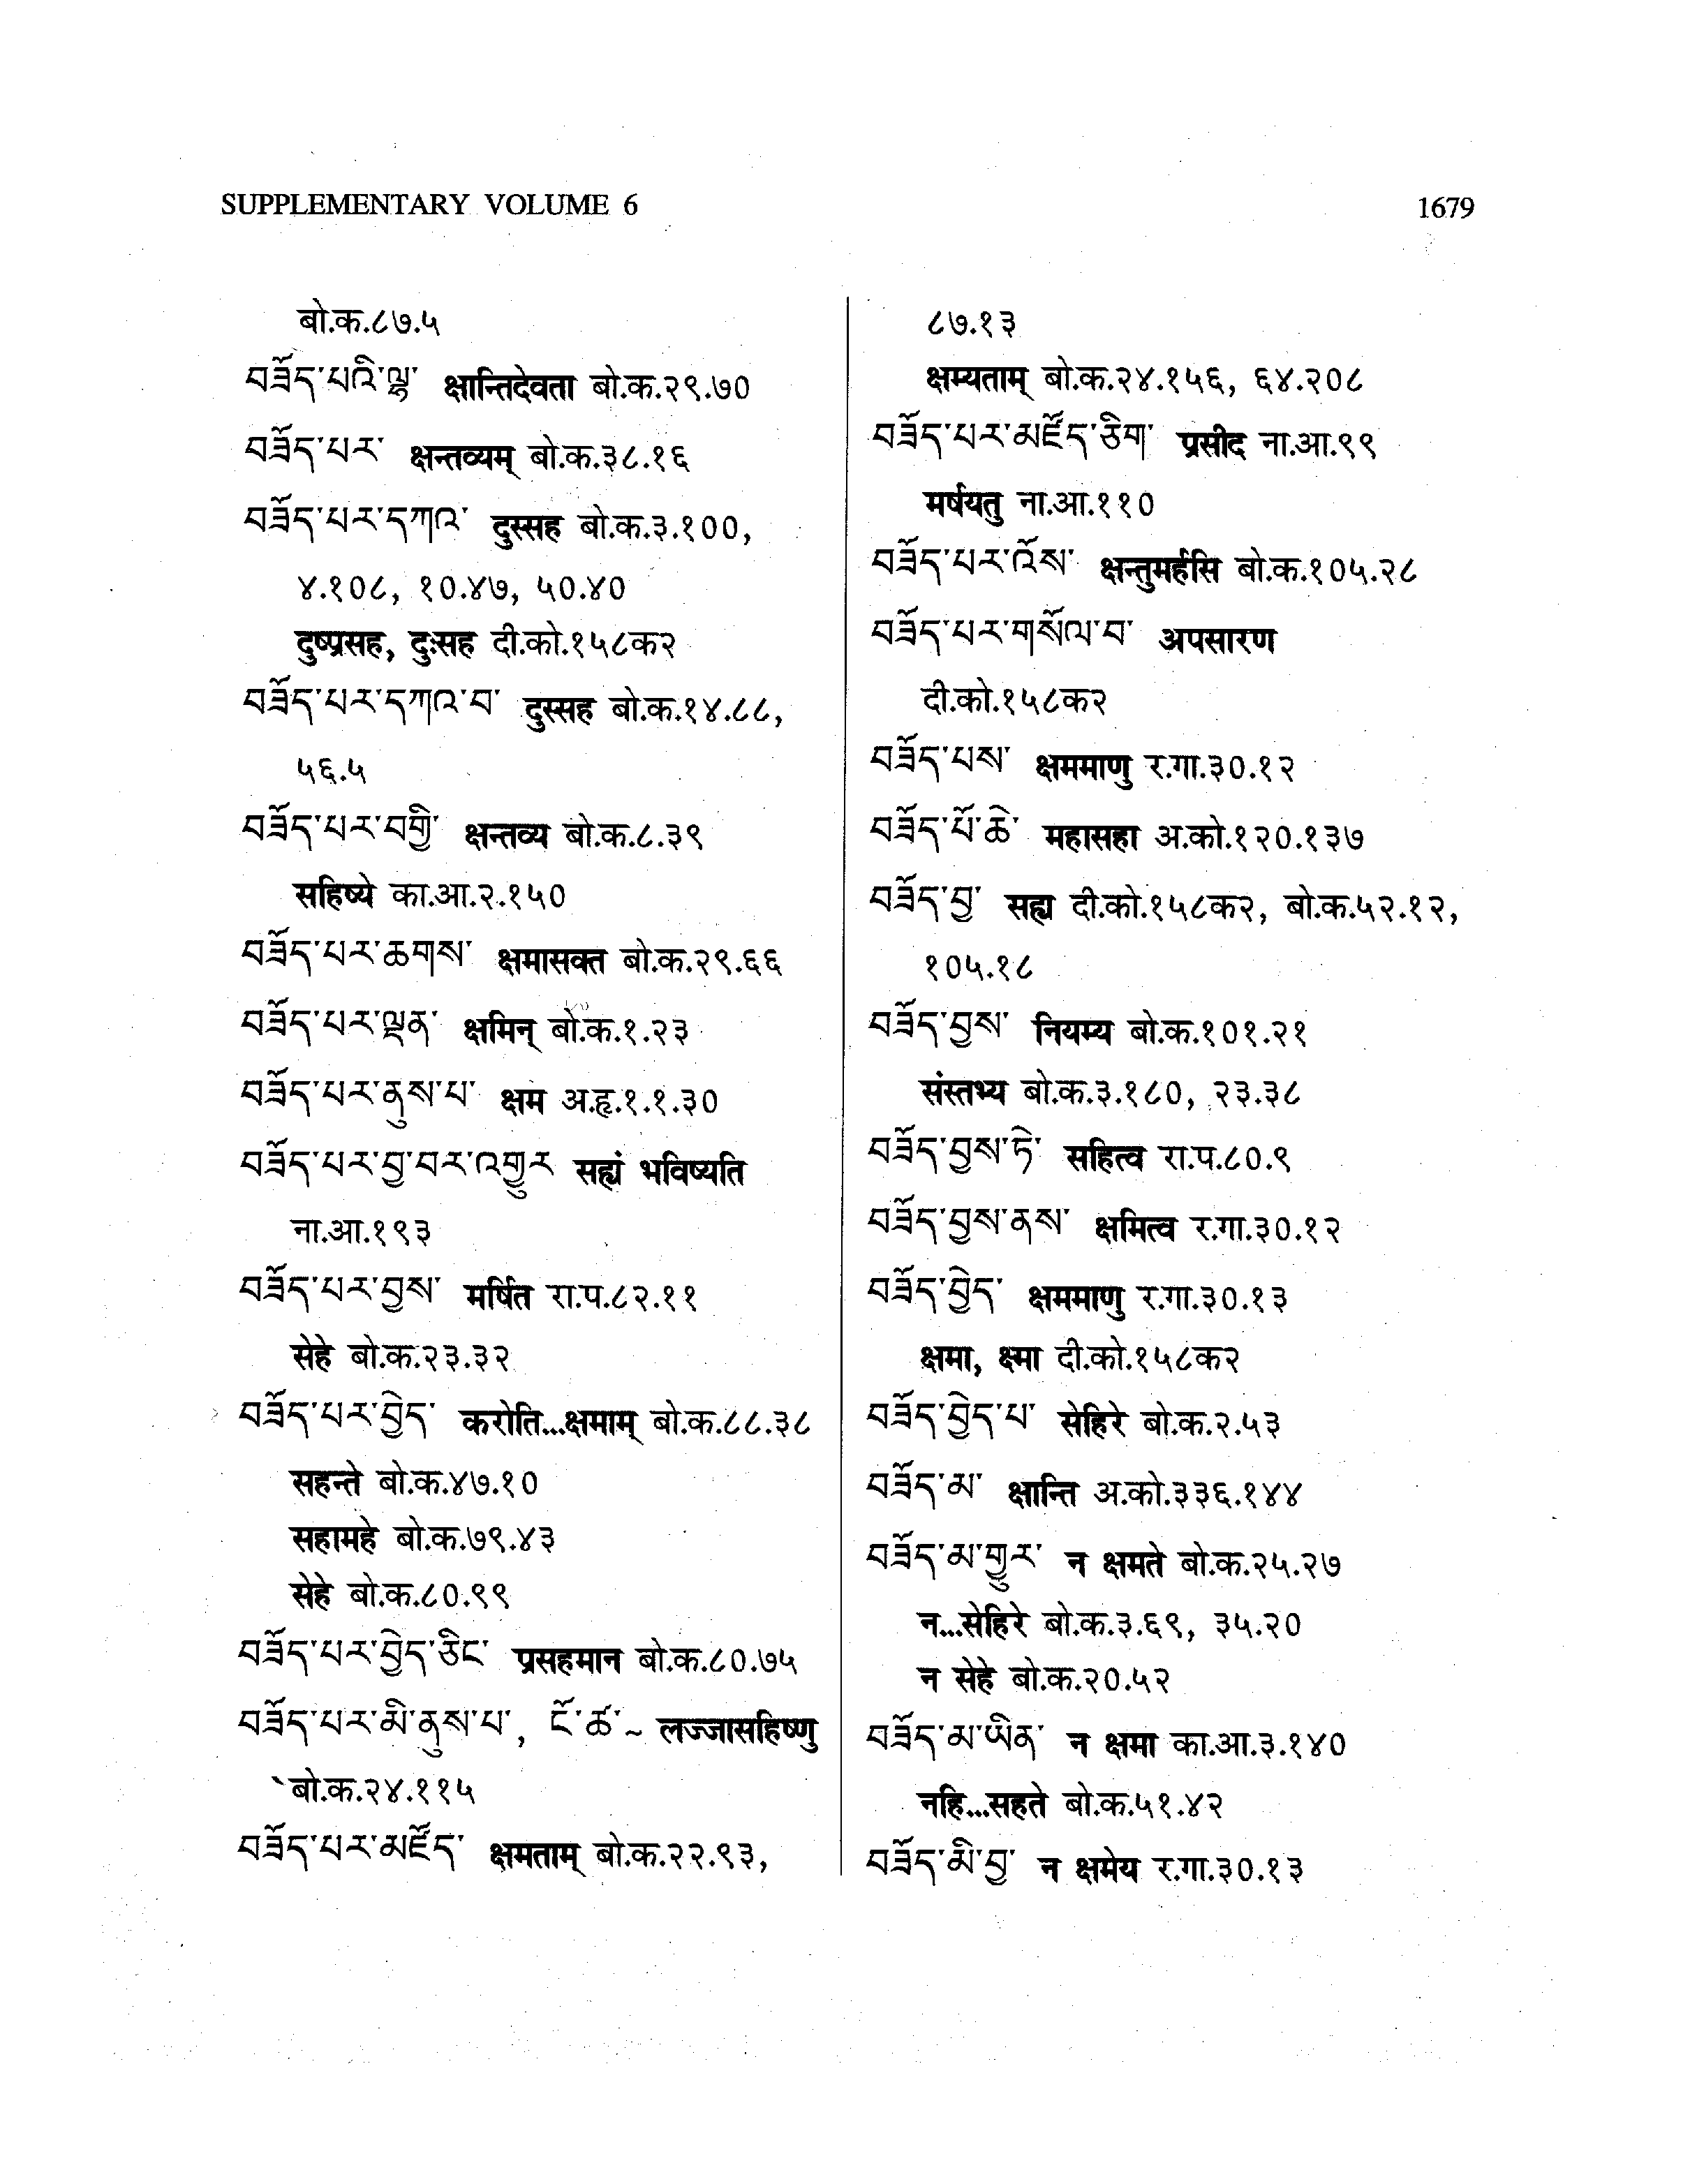 SUPPLEMENTARY VOLUME 6
1679
बो.क.८७.५
བཟོད་པའི་ལྷ་ क्षान्तिदेवता बो.क.२९.७०
བཟོད་པར་ क्षन्तव्यम् बो.क.३८.१६
བཟོད་པར་དཀའ་ दुस्सह बो.क.३.१००,
४.१०८, १०.४७, ५०.४०
दुष्प्रसह, दुःसह दी.को.१५८क२
བཟོད་པར་དཀའ་བ་ दुस्सह बो.क.१४.८८,
५६.५
བཟོད་པར་བགྱི་ क्षन्तव्य बो.क.८.३९
सहिष्ये का.आ.२.१५०
བཟོད་པར་ཆགས་ क्षमासक्त बो.क.२९.६६
བཟོད་པར་ལྡན་ क्षमिन् बो.क.१.२३
བཟོད་པར་ནུས་པ་ क्षम अ.हृ.१.१.३०
བཟོད་པར་བྱ་བར་འགྱུར སह्यं भविष्यति
ना.आ.१९३
བཟོད་པར་བྱས་ मर्षित रा.प.८२.११
सेहे बो.क.२३.३२
བཟོད་པར་བྱེད་ करोति...क्षमाम् बो.क.८८.३८
सहन्ते बो.क.४७.१०
सहामहे बो.क.७९.४३
सेहे बो.क.८०.९९
བཟོད་པར་བྱེད་ཅིང་ प्रसहमान बो.क.८०.७५
བཟོད་པར་མི་ནུས་པ་, ངོ་ཚ་~ लज्जासहिष्णु
बो.क.२४.११५
བཟོད་པར་མཛོད་ क्षमताम् बो.क.२२.९३,
८७.१३
क्षम्यताम् बो.क.२४.१५६, ६४.२०८
བཟོད་པར་མཛོད་ཅིག་ प्रसीद ना.आ.९९
मर्षयतु ना.आ.११०
བཟོད་པར་འོས་ क्षन्तुमर्हसि बो.क.१०५.२८
བཟོད་པར་གསོལ་བ་ अपसारण
दी.को.१५८क२
བཟོད་པས་ क्षममाणु र.गा.३०.१२
བཟོད་པོ་ཆེ་ महासहा अ.को.१२०.१३७
བཟོད་བྱ་ सह्य दी.को.१५८क२, बो.क.५२.१२,
१०५.१८
བཟོད་བྱས་ नियम्य बो.क.१०१.२१
संस्तभ्य बो.क.३.१८०, २३.३८
བཟོད་བྱས་ཏེ་ सहित्व रा.प.८०.९
བཟོད་བྱས་ནས་ क्षमित्व र.गा.३०.१२
བཟོད་བྱེད་ क्षममाणु र.गा.३०.१३
क्षमा, क्ष्मा दी.को.१५८क२
བཟོད་བྱེད་པ་ सेहिरे बो.क.२.५३
བཟོད་མ་ क्षान्ति अ.को.३३६.१४४
བཟོད་མ་གྱུར་ न क्षमते बो.क.२५.२७
न...सेहिरे बो.क.३.६९, ३५.२०
न सेहे बो.क.२०.५२
བཟོད་མ་ཡིན་ न क्षमा का.आ.३.१४०
नहि...सहते बो.क.५१.४२
བཟོད་མི་བྱ་ न क्षमेय र.गा.३०.१३